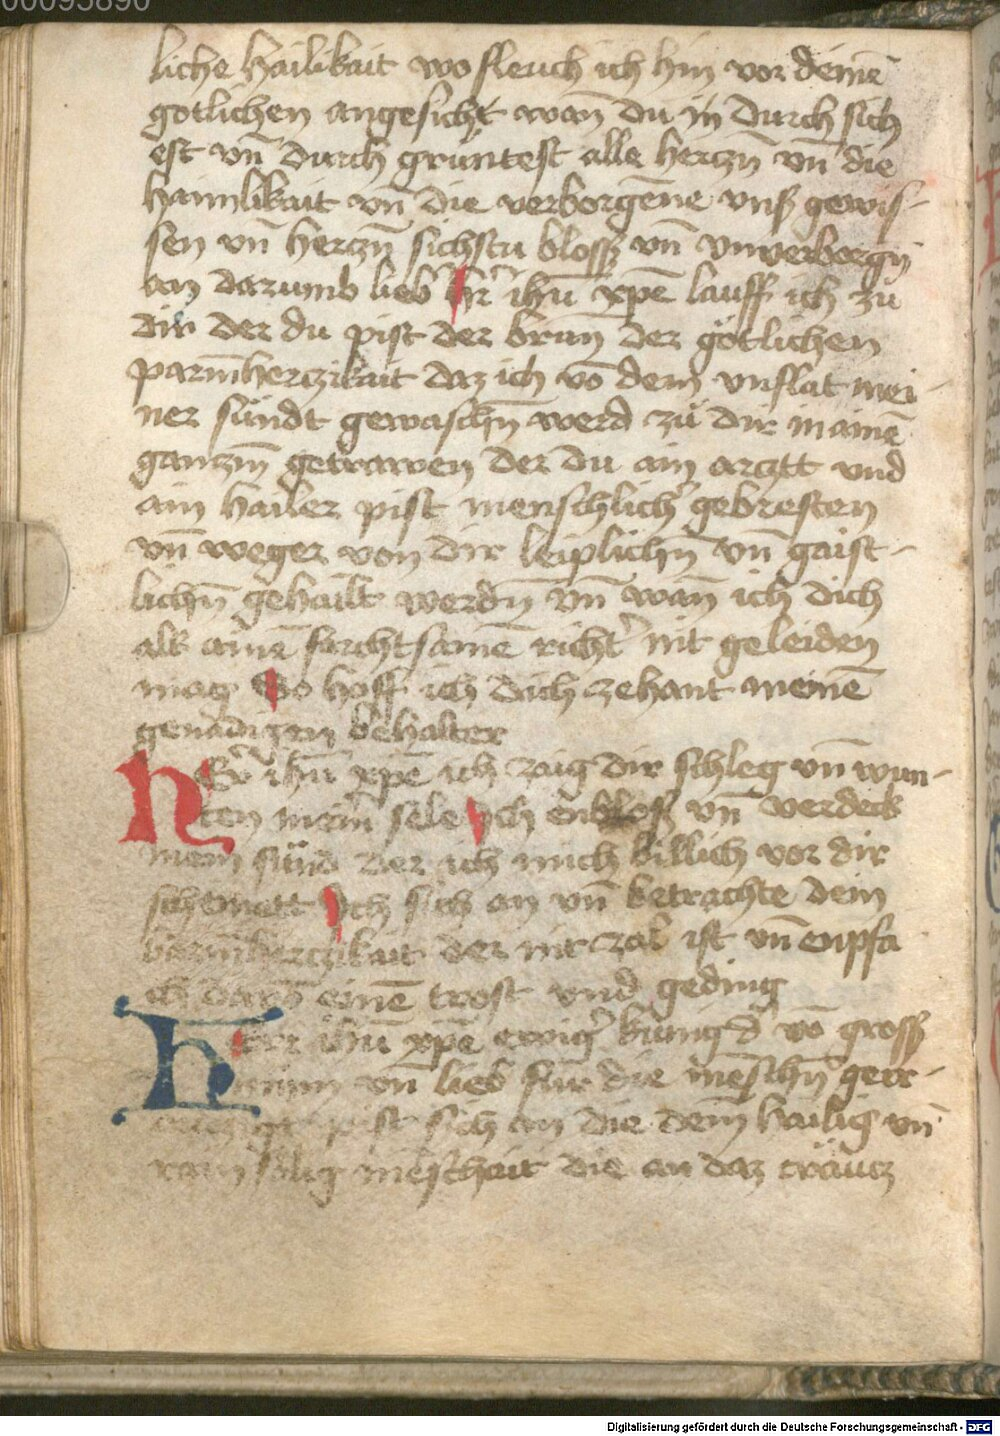 00095890
liche hailikait wo fleuch ich hin vor deinē
gotlichen angesicht wan̄ du in durch sich
est vn̄ durch gruntest alle herczn̄ vn̄ die
haimlikait vn̄ die verborgēne vnsß gewis-
sen vn̄ herczn̄ sichstu blosß vn̄ vnverborgn̄
darumb lieb hr̄ ihū xpē lauff ich zu
dir der du pist der brun̄ der götlichen
parm̄herczikait daz ich vō dem vnflat mei-
ner sündt gewaschn̄ werd zu dir in ainē
ganczm̄ getrawen der du ain arczt vnd
ain hailer pist menschlich' gebresten
vn̄ weger von dir leiplichn̄ vn̄ gaist-
lichn̄ gehailt werdn̄ vn̄ wan̄ ich dich
als ainē forchtsamē richt' nit geleiden
mag So hoff ich dich zehant meinē
genadigen behalter
HEr' ihū xpē ich zaig dir schleg vn̄ wun-
ten mein' sele Ich enblosß vn̄ verdeck
mein sünd der ich mich billich vor dir
schematt Ich sich an vn̄ betrachte dein
barm̄herczikait der nit zal ist vn̄ enpfa
ich einē trost vnd geding
Herr ihū xpē ewig' künig d' vō grosß
vn̄ lieb für die mēschn̄ gecr-
pist sich an die dem̄ hailig vn̄
rain sälig mēschait die an daz cräucz
Digitalisierung gefördert durch die Deutsche Forschungsgemeinschaft - DFG